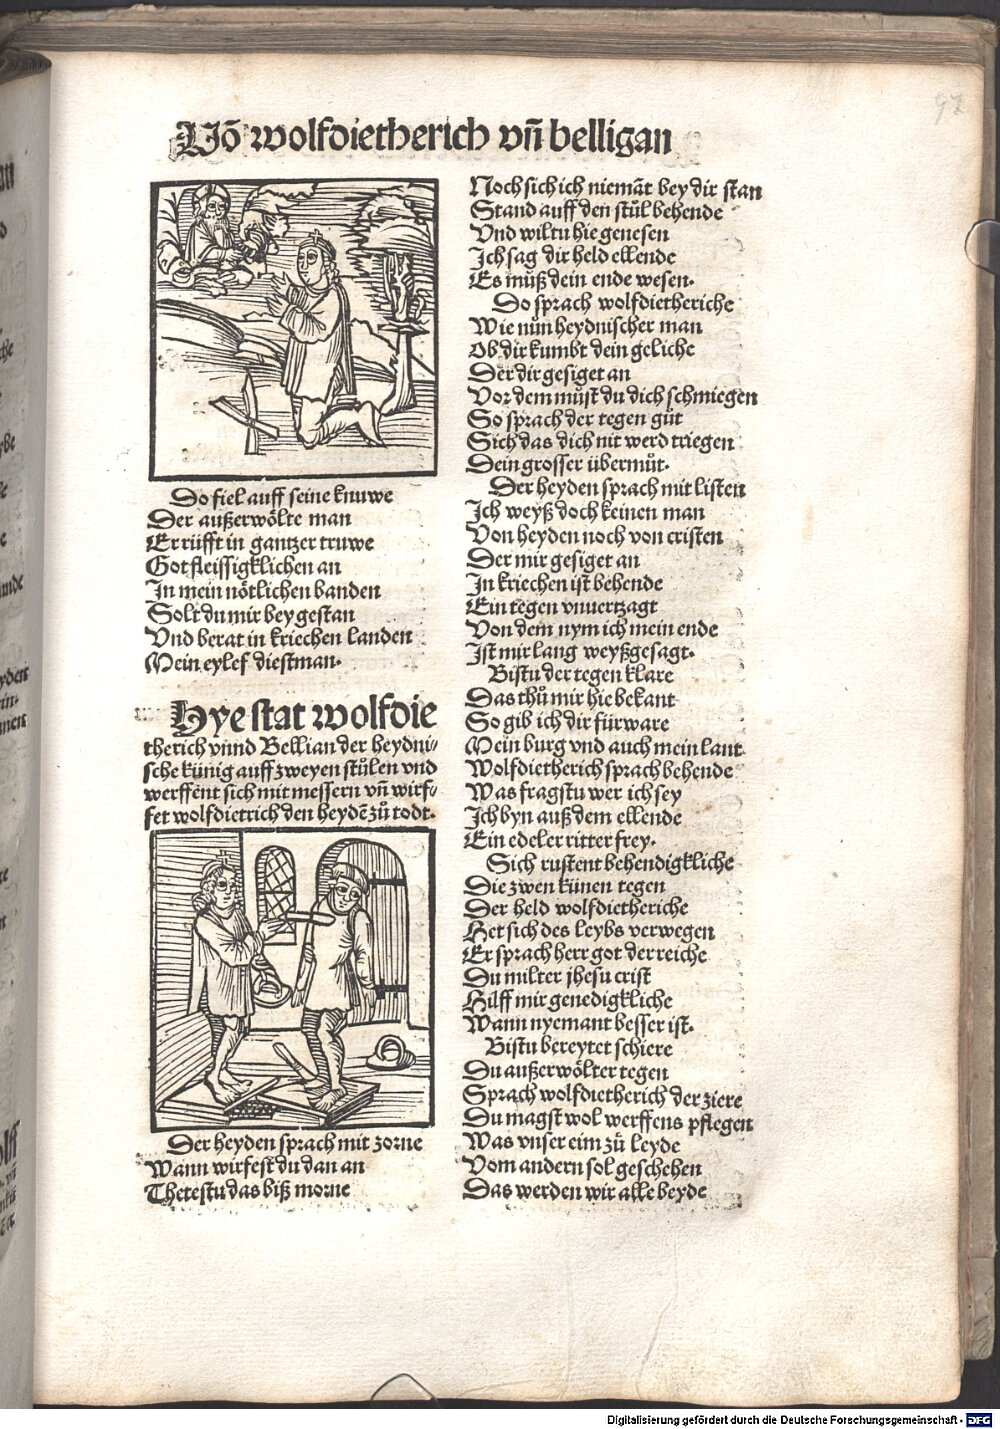 Uõ wolfdietherich vñ belligan
97
Do fiel auff seine knuwe
Der außerwölte man
Er rüfft in gantzer truwe
Got fleissigklichen an
In mein nötlichen banden
Solt du mir bey gestan
Vnd berat in kriechen landen
Mein eylef diestman.
Hye stat wolfdie
therich vnnd Bellian der heydni/
sche künig auff zweyen stůlen vnd
werffent sich mit messern vñ wirf/
fet wolfdietrich den heydẽ zů todt.
Der heyden sprach mit zorne
Wann wirfest du dan an
Thetestu das biß morne
Noch sich ich niemãt bey dir stan
Stand auff den stůl behende
Vnd wiltu hie genesen
Ich sag dir held ellende
Es můß dein ende wesen.
Do sprach wolfdietheriche
Wie nůn heydnischer man
Ob dir kumbt dein geliche
Der dir gesiget an
Vor dem můst du dich schmiegen
So sprach der tegen gůt
Sich das dich nit werd triegen
Dein grosser übermůt.
Der heyden sprach mit listen
Ich weyß doch keinen man
Von heyden noch von cristen
Der mir gesiget an
In kriechen ist behende
Ein tegen vnuertzagt
Von dem nym ich mein ende
Ist mir lang weyßgesagt.
Bistu der tegen klare
Das thů mir hie bekant
So gib ich dir fürware
Mein burg vnd auch mein lant
Wolfdietherich sprach behende
Was fragstu wer ich sey
Ich byn auß dem ellende
Ein edeler ritter frey.
Sich rustent behendigkliche
Die zwen künen tegen
Der held wolfdietheriche
Het sich des leybs verwegen
Er sprach herr got der reiche
Du milter jhesu crist
Hilff mir genedigkliche
Wann nyemant besser ist.
Bistu bereytet schiere
Du außerwölter tegen
Sprach wolfdietherich der ziere
Du magst wol werffens pflegen
Was vnser eim zů leyde
Vom andern sol geschehen
Das werden wir alle beyde
Digitalisierung gefördert durch die Deutsche Forschungsgemeinschaft - DFG